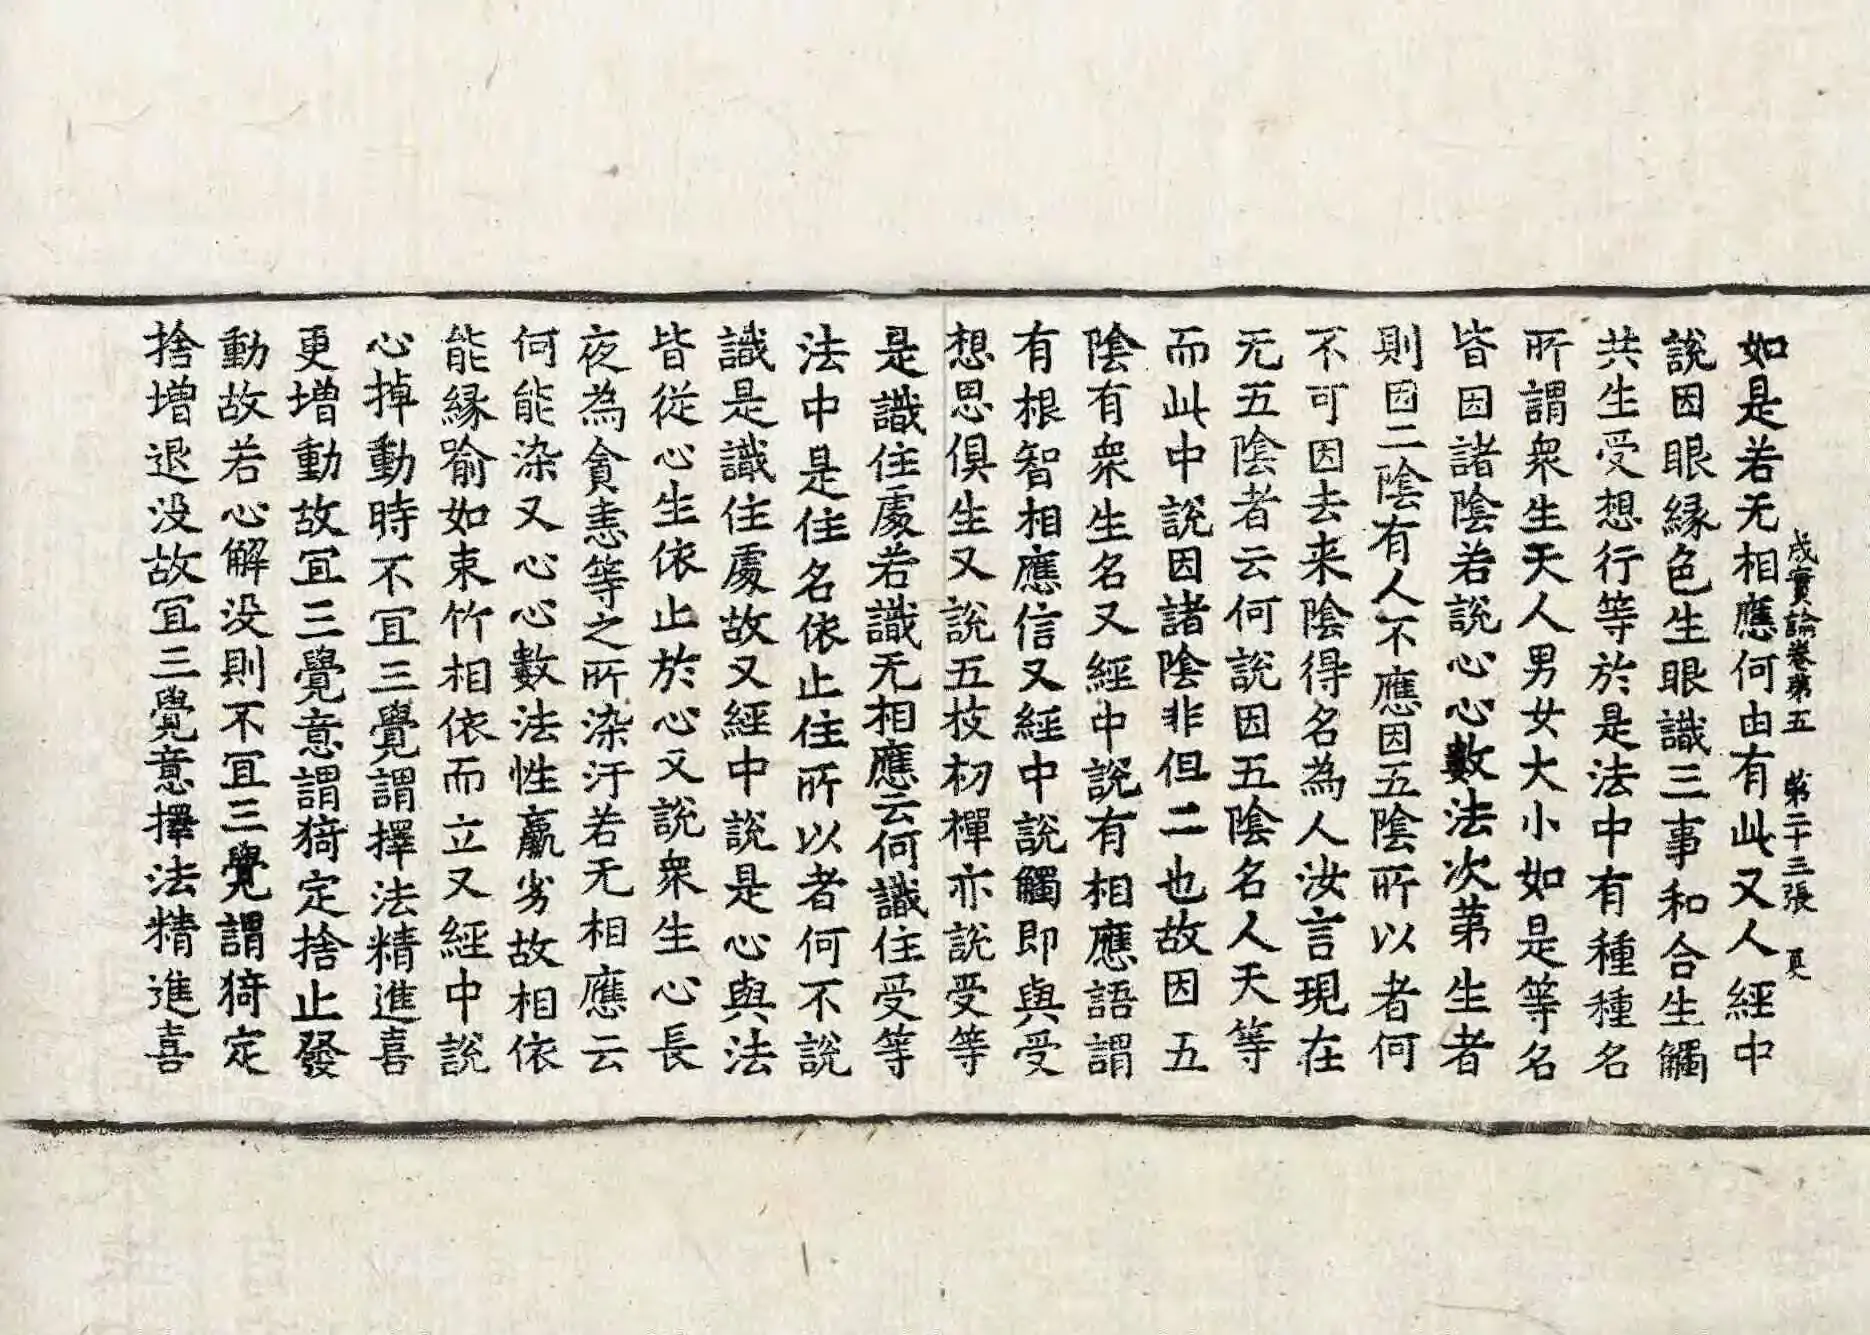 成實論卷第五　第二十三張　夏
如是若无相應何由有此又人經中
說因眼緣色生眼識三事和合生觸
共生受想行等於是法中有種種名
所謂衆生天人男女大小如是等名
皆因諸陰若說心心數法次第生者
則因二陰有人不應因五陰所以者何
不可因去来陰得名為人汝言現在
无五陰者云何說因五陰名人天等
而此中說因諸陰非但二也故因五
陰有衆生名又經中說有相應語謂
有根智相應信又經中說觸即與受
想思俱生又說五枝初禪亦說受等
是識住處若識无相應云何識住受等
法中是住名依止住所以者何不說
識是識住處故又經中說是心與法
皆從心生依止於心又說衆生心長
夜為貪恚等之所染汙若无相應云
何能染又心心數法性羸劣故相依
能緣喻如束竹相依而立又經中說
心掉動時不宜三覺謂擇法精進喜
更增動故宜三覺意謂猗定捨止發
動故若心解没則不宜三覺謂猗定
捨增退没故宜三覺意擇法精進喜